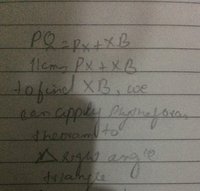 PQ = PX + XB
11cm = PX + XB
to find XB, we
can apply Phythagoras
theoram to
△ right angle
triangle